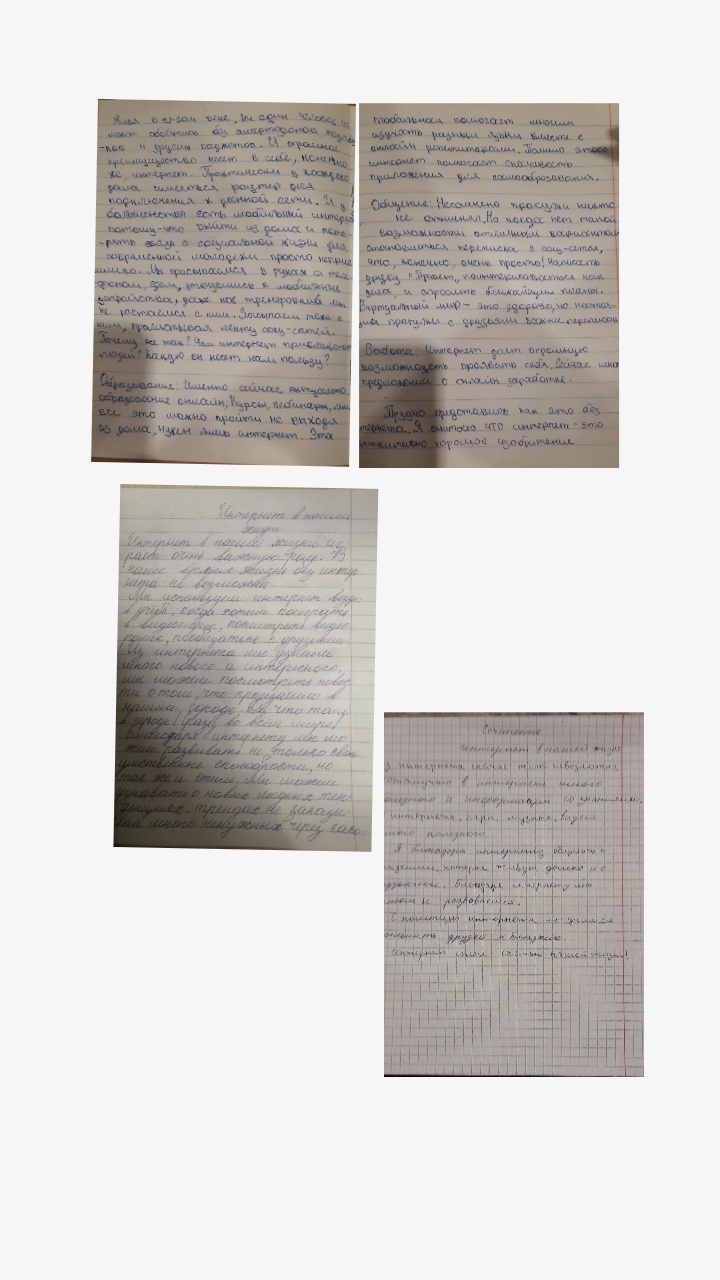 Живя в 21-ом веке, ни один человек не
может обойтись без смартфона,
-ков и других гаджетов. И огромное
преимущество несет в себе, конечно
же, интернет. Практически у каждого
дома имеется роутер для
подключения к данной сети. И у
большинства есть мобильный интернет
потому-что выйти из дома и поте-
-рять связь с социальной жизни для
современной молодежи просто
Мы просыпаемся в руках с теле-
фоном, едим, уткнувшись в мобильные
устройства, даже на тренировках мы
не расстаемся с ним. Засыпаем тоже с
ним, пролистывая ленту соц-сетей.
Почему же так? Чем интернет привлекает
людей? Какую он несет нам пользу?
Образование: Именно сейчас актуально
образование онлайн. Курсы, вебинары,
все это можно пройти не выходя
из дома, нужен лишь интернет. Эта
глобальная помогает многим
изучать разные языки вместе с
онлайн репетиторами. Помимо этого
интернет помогает скачивать
приложения для самообразования.
Общение: Несомненно прогулки никто
не отменял. Но когда нет такой
возможности отличным вариантом
становиться переписка в соц-сетях,
что, конечно, очень просто! Написать
другу "Привет", поинтересоваться как
дела, и спросить ближайшие планы.
Виртуальный мир - это здорово, но настоя-
щие прогулки с друзьями важнее переписок
Работа: Интернет дает огромную
возможность проявить себя. Сейчас
предложений о онлайн заработке.
Трудно представить как это без
интернета. Я считаю что интернет - это
хорошее изобретение
Интернет в нашей
жизни
Интернет в нашей жизни иг-
рает очень важную роль. В
наше время жизнь без интер-
нета не возможна.
Мы используем интернет везде
в учебе, когда хотим поиграть
в видеоигры, посмотреть видео-
ролик, пообщаться с друзьями.
Из интернета мы узнаем
много нового и интересного,
мы можем посмотреть новос
ти о том, что произошло в
нашем городе, да что там
в городе! Сразу во всём мире!
Благодаря интернету мы мо
жем развивать не только свои
умственные способности, но
так же и стиль. Мы можем
узнавать о новых модных тен-
денциях, трендах и заказы-
вая много ненужных через
Сочинение
Интернет в нашей жизни
интернета сейчас жизнь невозможна,
в интернете много
и информации со знаниями,
интернета, игры, музыка, видео
много полезного.
Я благодаря интернету общаюсь с
которые живут далеко и с
Благодаря интернету мы
и развиваемся.
С помощью интернета мы учимся
друзей и близких.
Интернет часть нашей жизни!